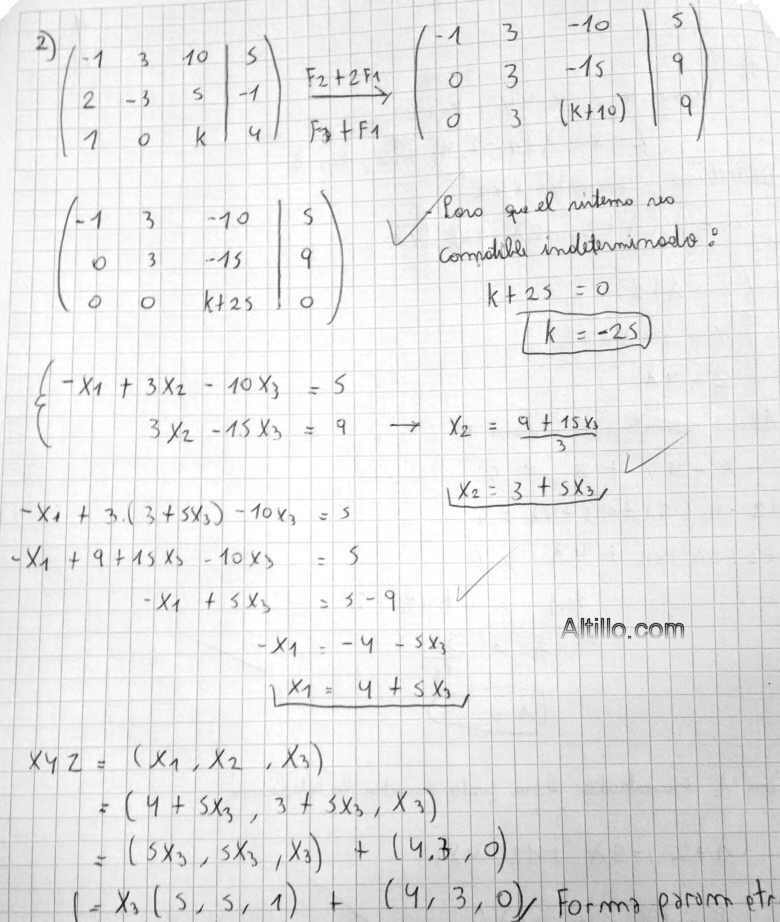 2) ( -1 3 10 | 5 ; 2 -3 5 | -1 ; 1 0 k | 4 ) F2+2F1 → F3+F1 ( -1 3 -10 | 5 ; 0 3 -15 | 9 ; 0 3 (k+10) | 9 )
( -1 3 -10 | 5 ; 0 3 -15 | 9 ; 0 0 k+25 | 0 )
- Para que el sistema sea
compatible indeterminado:
k + 25 = 0
k = -25
{ -x1 + 3x2 - 10x3 = 5
3x2 - 15x3 = 9 → x2 = (9 + 15x3)/3
x2 = 3 + 5x3
-x1 + 3.(3+5x3) - 10x3 = 5
-x1 + 9 + 15x3 - 10x3 = 5
-x1 + 5x3 = 5 - 9
Altillo.com
-x1 = -4 - 5x3
x1 = 4 + 5x3
XYZ = (x1, x2, x3)
= (4 + 5x3, 3 + 5x3, x3)
= (5x3, 5x3, x3) + (4,3,0)
= x3 (5, 5, 1) + (4, 3, 0) Forma